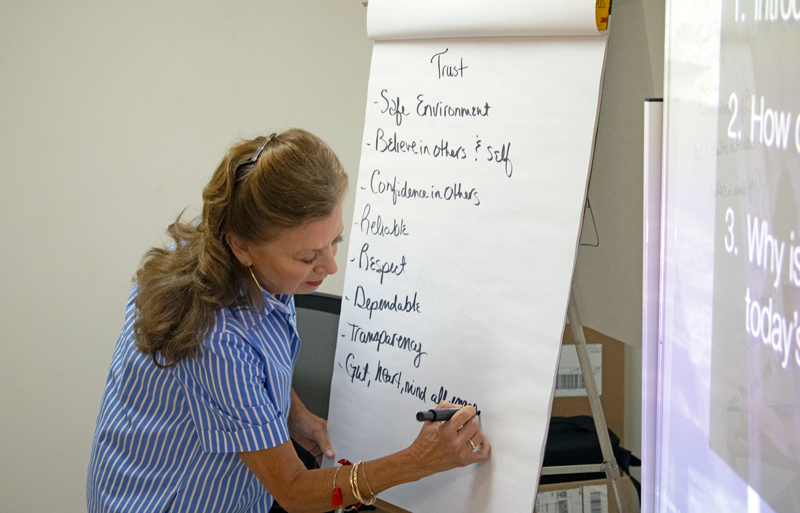 Trust
- Safe Environment
- Believe in others & Self
- Confidence in Others
- Reliable
- Respect
- Dependable
- Transparency
- Gut, heart, mind all
1. Introd
2. How
3. Why is
today's